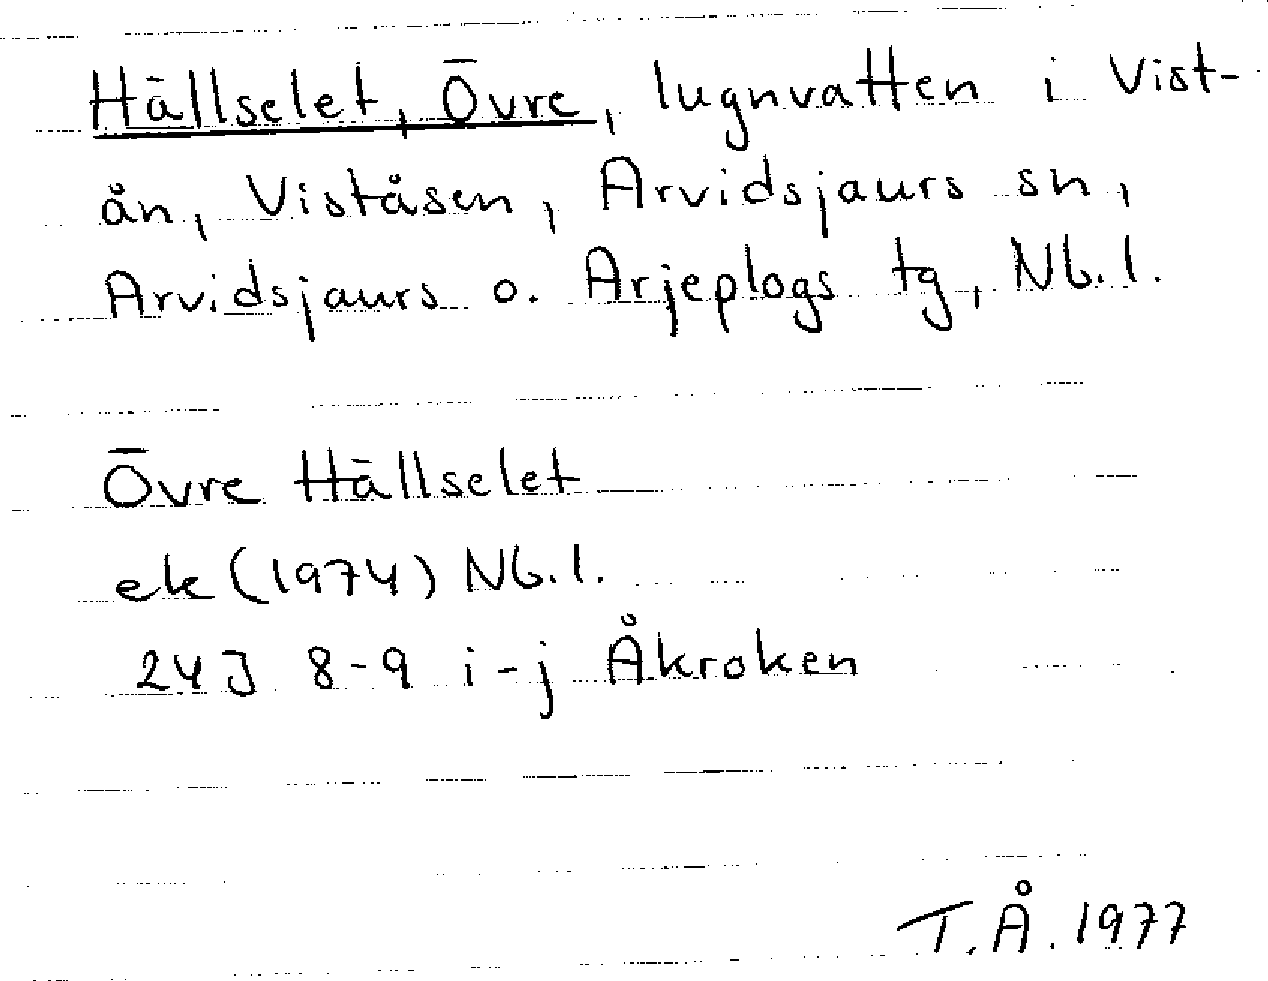 Hällselet, Övre, lugnvatten i Vist-
ån,Viståsen, Arvidsjaurs sn,
Arvidsjaurs o. Arjeplogs tg, Nb.l.
Övre Hällselet
ek (1974) Nb.l.
24J 8-9 i-j Åkroken
T.Å. 1977